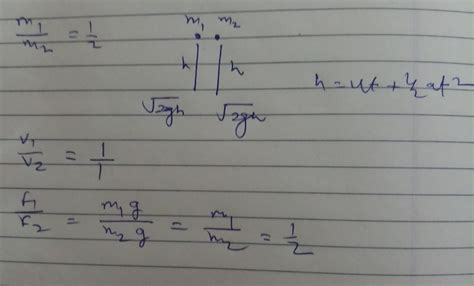 m₁/m₂ = 1/2
m₁ m₂
h h
√2gh √2gh
h = ut + ½ at²
v₁/v₂ = 1/1
F₁/F₂ = m₁g/m₂g = m₁/m₂ = 1/2